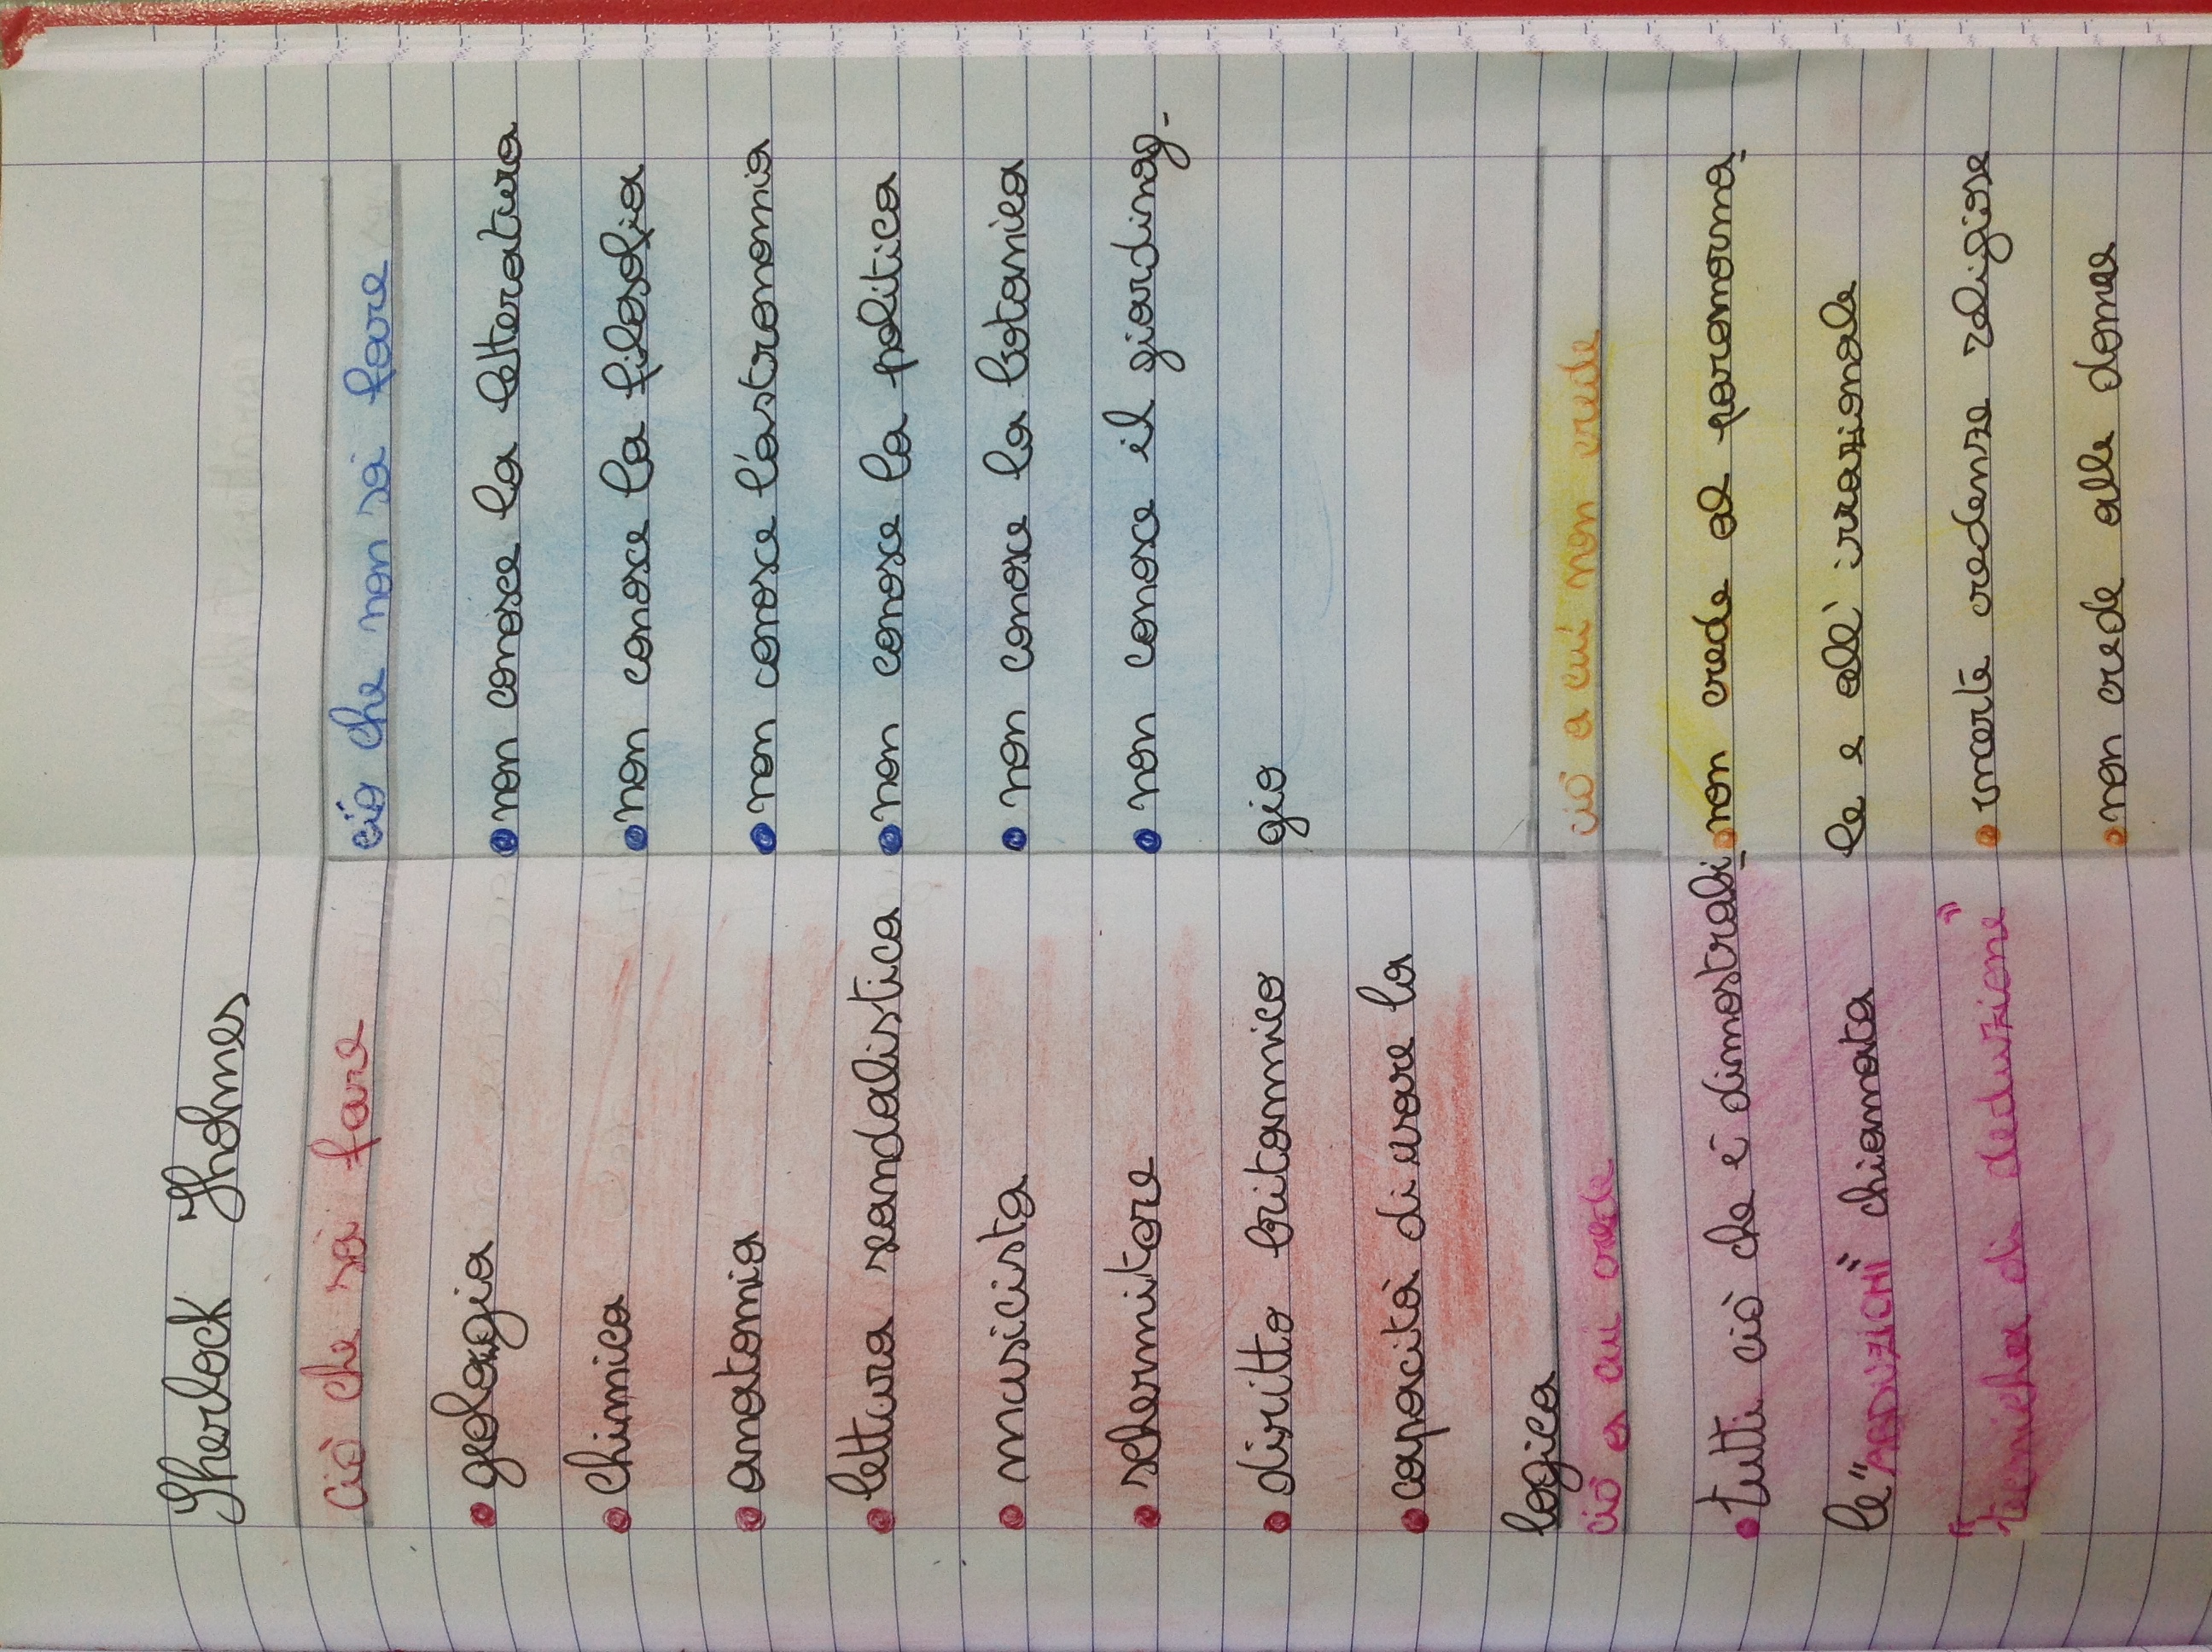 Sherlock Sholmes
ciò che sà fare
• geologia
• chimica
• anatomia
• lettura scandalistica
• musicista
• schermitore
• diritto britannico
• capacità di usare la
logica
ciò che non sà fare
• non conosce la letteratura
• non conosce la filosofia
• non conosce l'astronomia
• non conosce la politica
• non conosce la botanica
• non conosce il giardinag-
gio
ciò a cui crede
• tutti ciò che è dimostrabi-
le "ABDUZICHI" chiamata
"tecnicha di deduzione"
ciò a cui non crede
• non crede al paranorma-
le e all'irrazionale
• incerte credenze religiose
• non crede alle donne